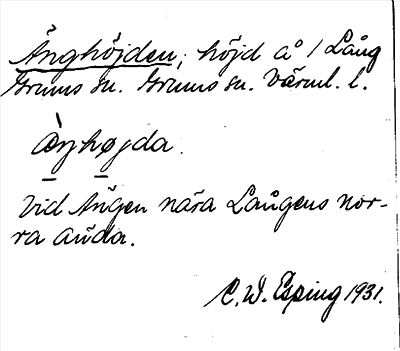 Änghöjden, höjd å 1 Lång
Grums sn. Grums sn. Värml. l.
Æ̀ŋhøjda.
Vid Ängen nära Långens nor-
ra ända.
C. W. Esping 1931.